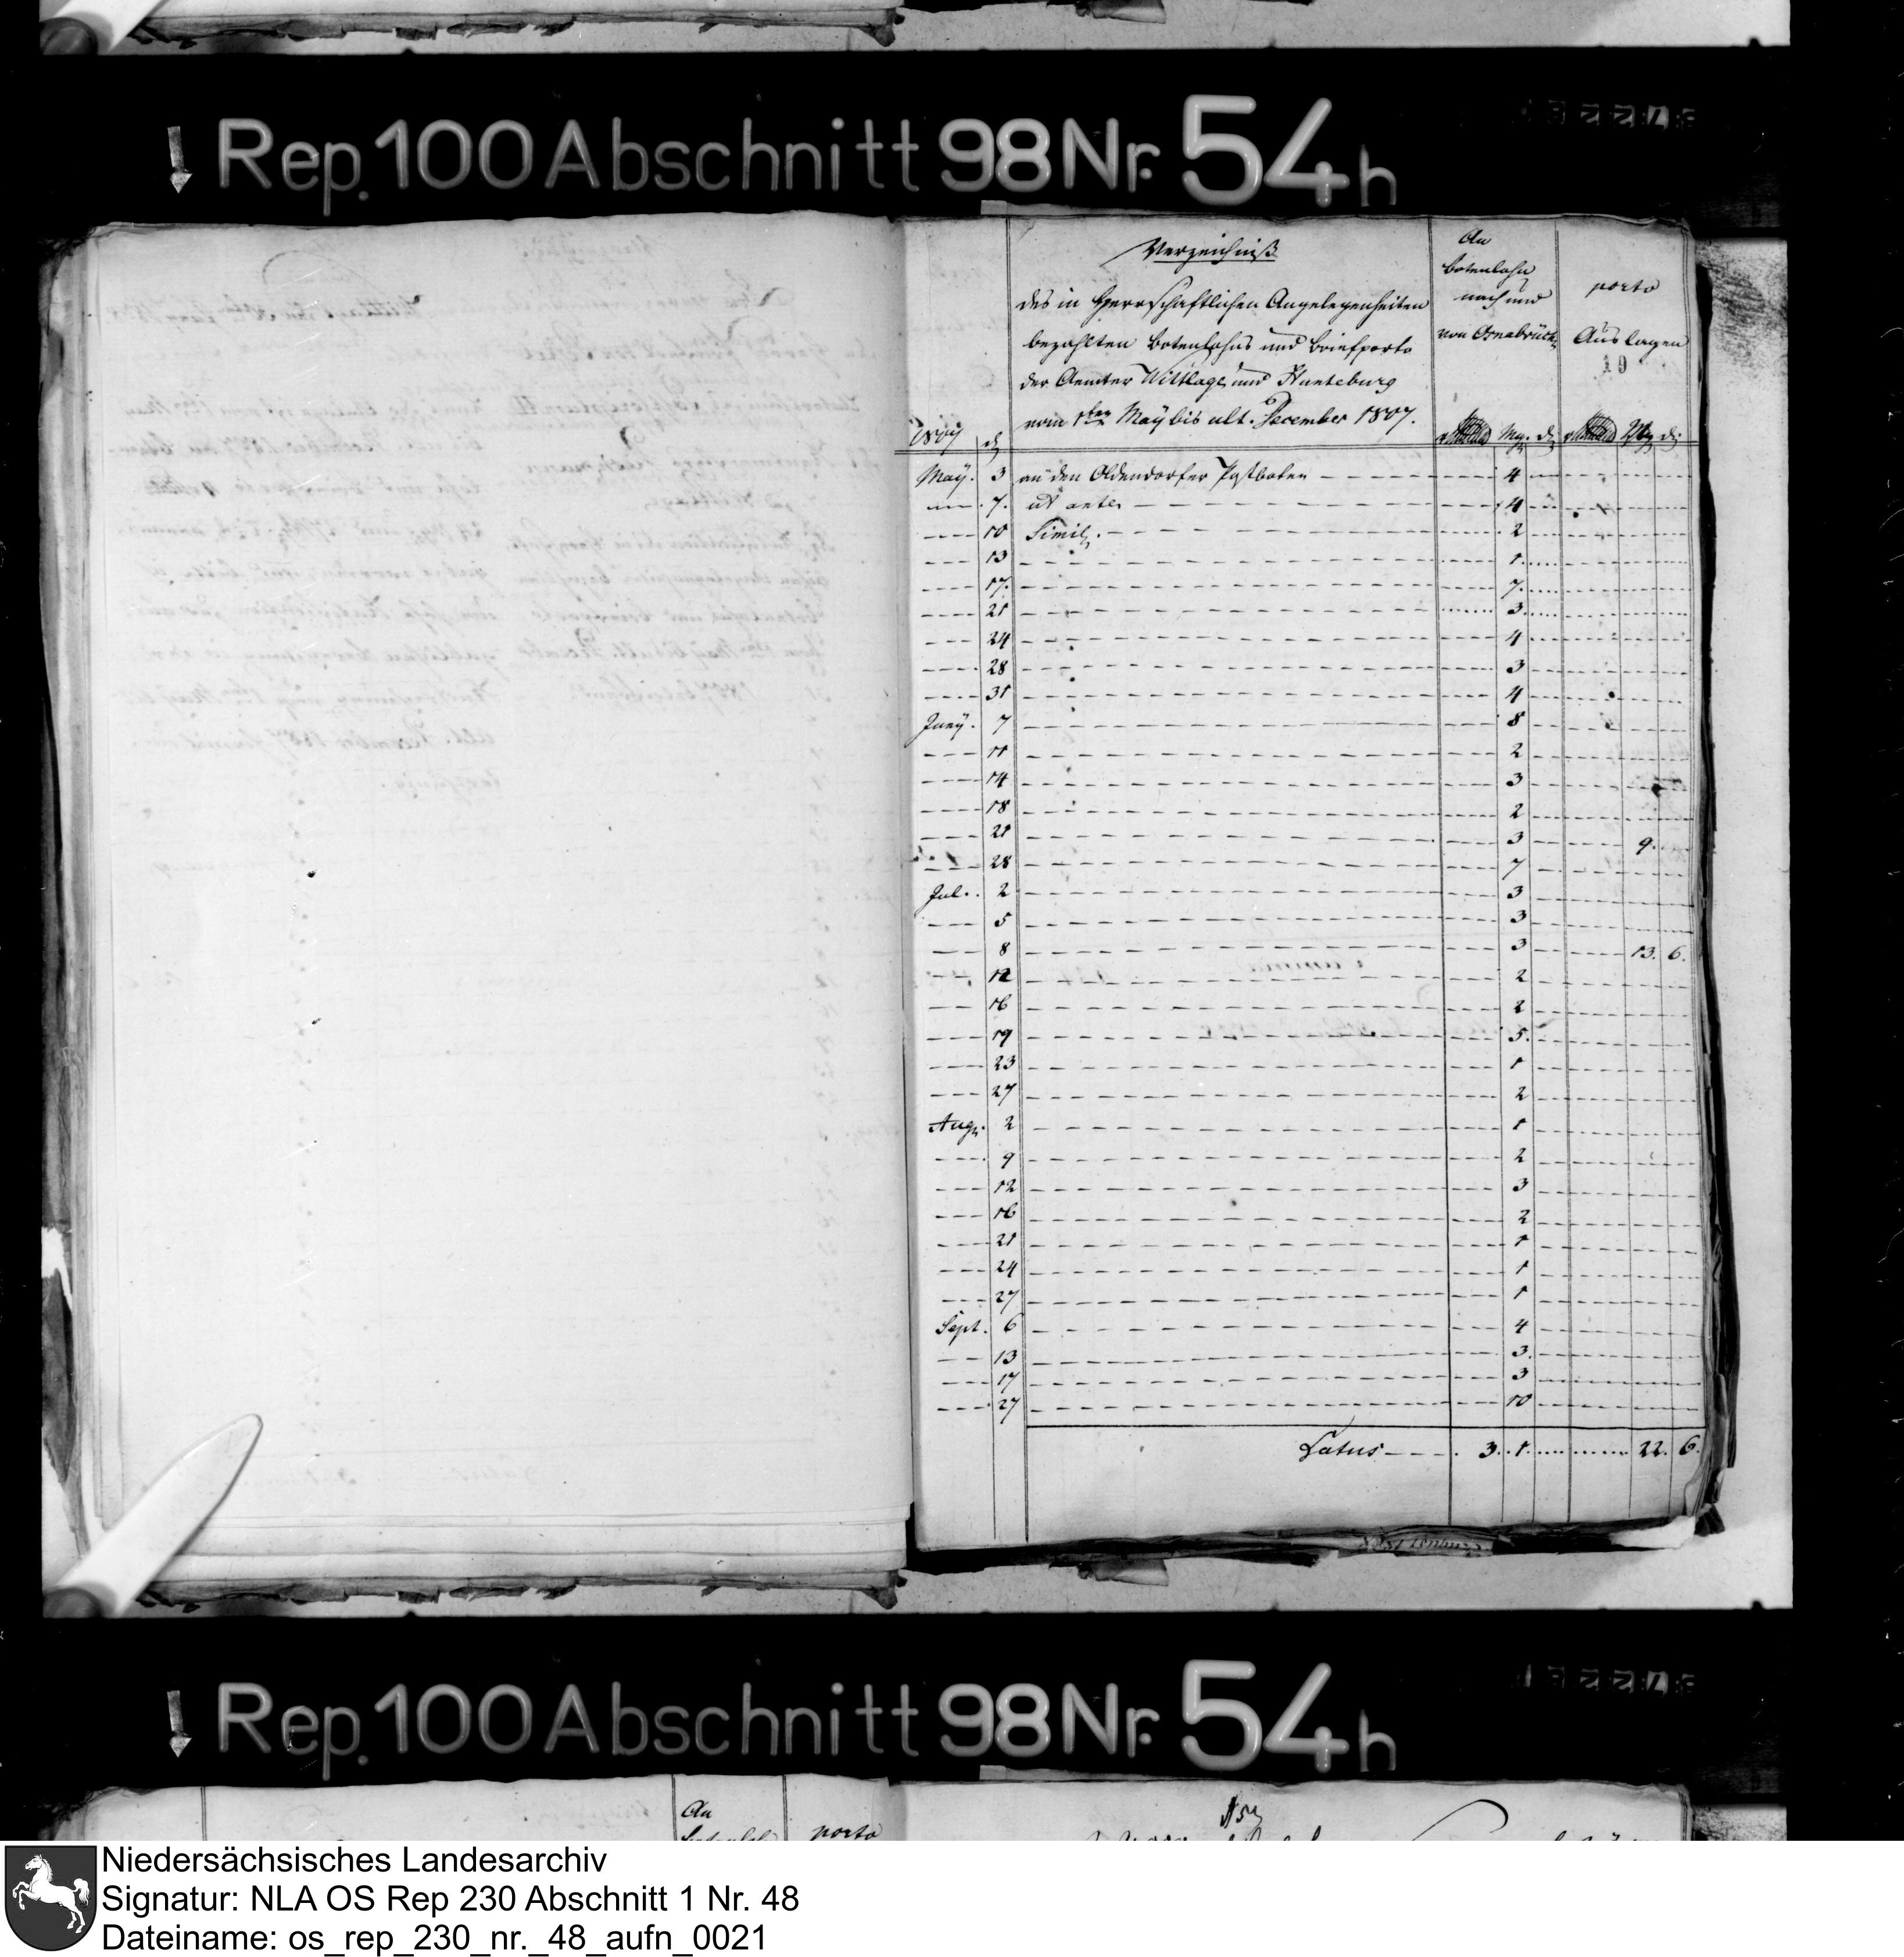 Rep. 100 Abschnitt 98 Nr. 54 h
Verzeichniß
des in Herrschaftlichen Angelegenheiten
bezahlten Botenlohns und Briefporto
der Aemter Wittlage und Hunteburg
vom 1ten May bis ult. December 1807.
An
Botenlohn
nach und
von Osnabrück
porto
Auslagen
10
1807
May. 3 an den Oldendorfer Postboten 4
7. ut ante 4
10 Simil. 2
13 1
17. 7.
21 3
24 4
28 3
31 4
Juny. 7 8
11 2
14 3
18 2
21 3 9.
28 7
Jul. 2 3
5 3
8 3 13. 6.
12 2
16 2
19 5.
23 1
27 2
Aug. 2 1
9 2
12 3
16 2
21 1
24 1
27 1
Sept. 6 4
13 3.
17 3
27 10
Latus 3. 1 22. 6.
Rep. 100 Abschnitt 98 Nr. 54 h
An
porto
Niedersächsisches Landesarchiv
Signatur: NLA OS Rep 230 Abschnitt 1 Nr. 48
Dateiname: os_rep_230_nr._48_aufn_0021